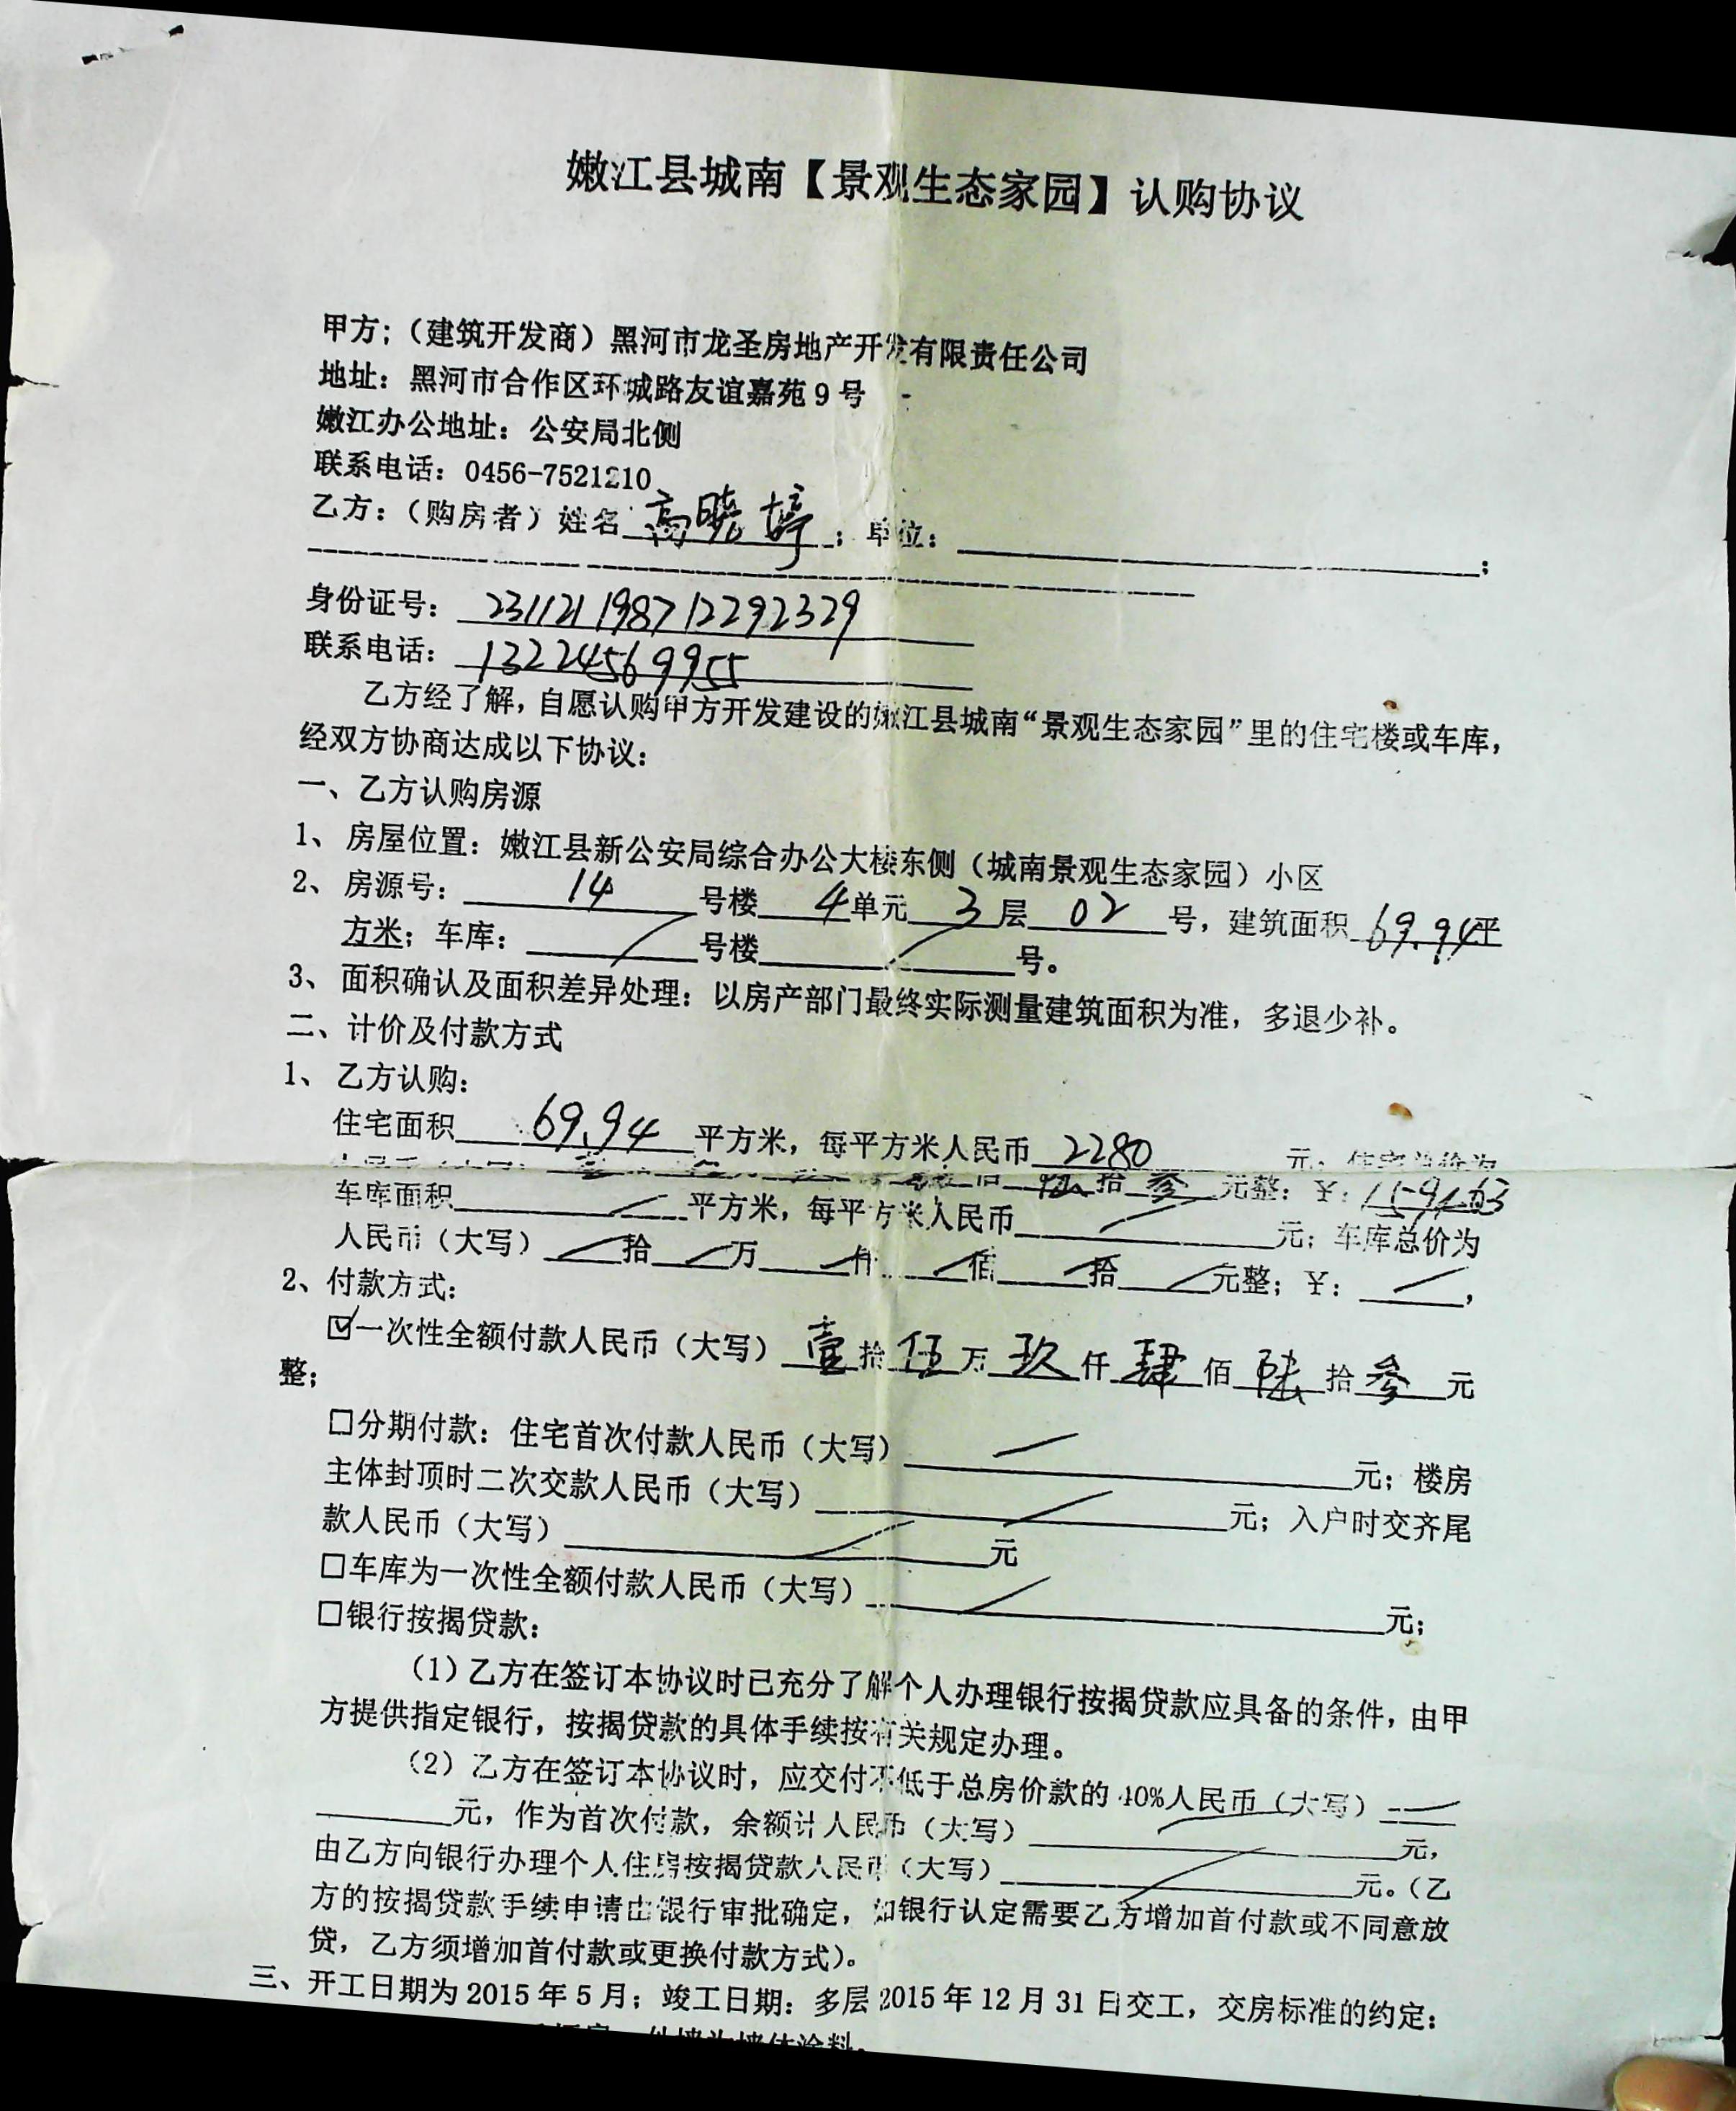 嫩江县城南【景观生态家园】认购协议
甲方;（建筑开发商）黑河市龙圣房地产开发有限责任公司
地址：黑河市合作区环城路友谊嘉苑9号
嫩江办公地址：公安局北侧
联系电话：0456-7521210
乙方：（购房者）姓名 高晓婷 ；单位： ；
身份证号： 231121198712292329
联系电话： 13224569955
乙方经了解，自愿认购甲方开发建设的嫩江县城南“景观生态家园”里的住宅楼或车库，
经双方协商达成以下协议：
一、乙方认购房源
1、房屋位置：嫩江县新公安局综合办公大楼东侧（城南景观生态家园）小区
2、房源号： 14 号楼 4 单元 3 层 02 号，建筑面积 69.94 平
方米；车库： 号楼 号。
3、面积确认及面积差异处理：以房产部门最终实际测量建筑面积为准，多退少补。
二、计价及付款方式
1、乙方认购：
住宅面积 69.94 平方米，每平方米人民币 2280 元；住宅总价为
佰 拾 叁 元整；￥：159463
车库面积 平方米，每平方米人民币 元；车库总价为
人民币（大写） 拾 万 仟 佰 拾 元整；￥： ，
2、付款方式：
☑一次性全额付款人民币（大写） 壹 拾 伍 万 玖 仟 肆 佰 陆 拾 叁 元
整；
□分期付款：住宅首次付款人民币（大写） 元；楼房
主体封顶时二次交款人民币（大写） 元；入户时交齐尾
款人民币（大写） 元
□车库为一次性全额付款人民币（大写） 元；
□银行按揭贷款：
（1）乙方在签订本协议时已充分了解个人办理银行按揭贷款应具备的条件，由甲
方提供指定银行，按揭贷款的具体手续按有关规定办理。
（2）乙方在签订本协议时，应交付不低于总房价款的40%人民币（大写）
元，作为首次付款，余额计人民币（大写） 元，
由乙方向银行办理个人住房按揭贷款人民币（大写） 元。（乙
方的按揭贷款手续申请由银行审批确定，如银行认定需要乙方增加首付款或不同意放
贷，乙方须增加首付款或更换付款方式）。
三、开工日期为2015年5月；竣工日期：多层2015年12月31日交工，交房标准的约定：
外墙为墙体涂料。